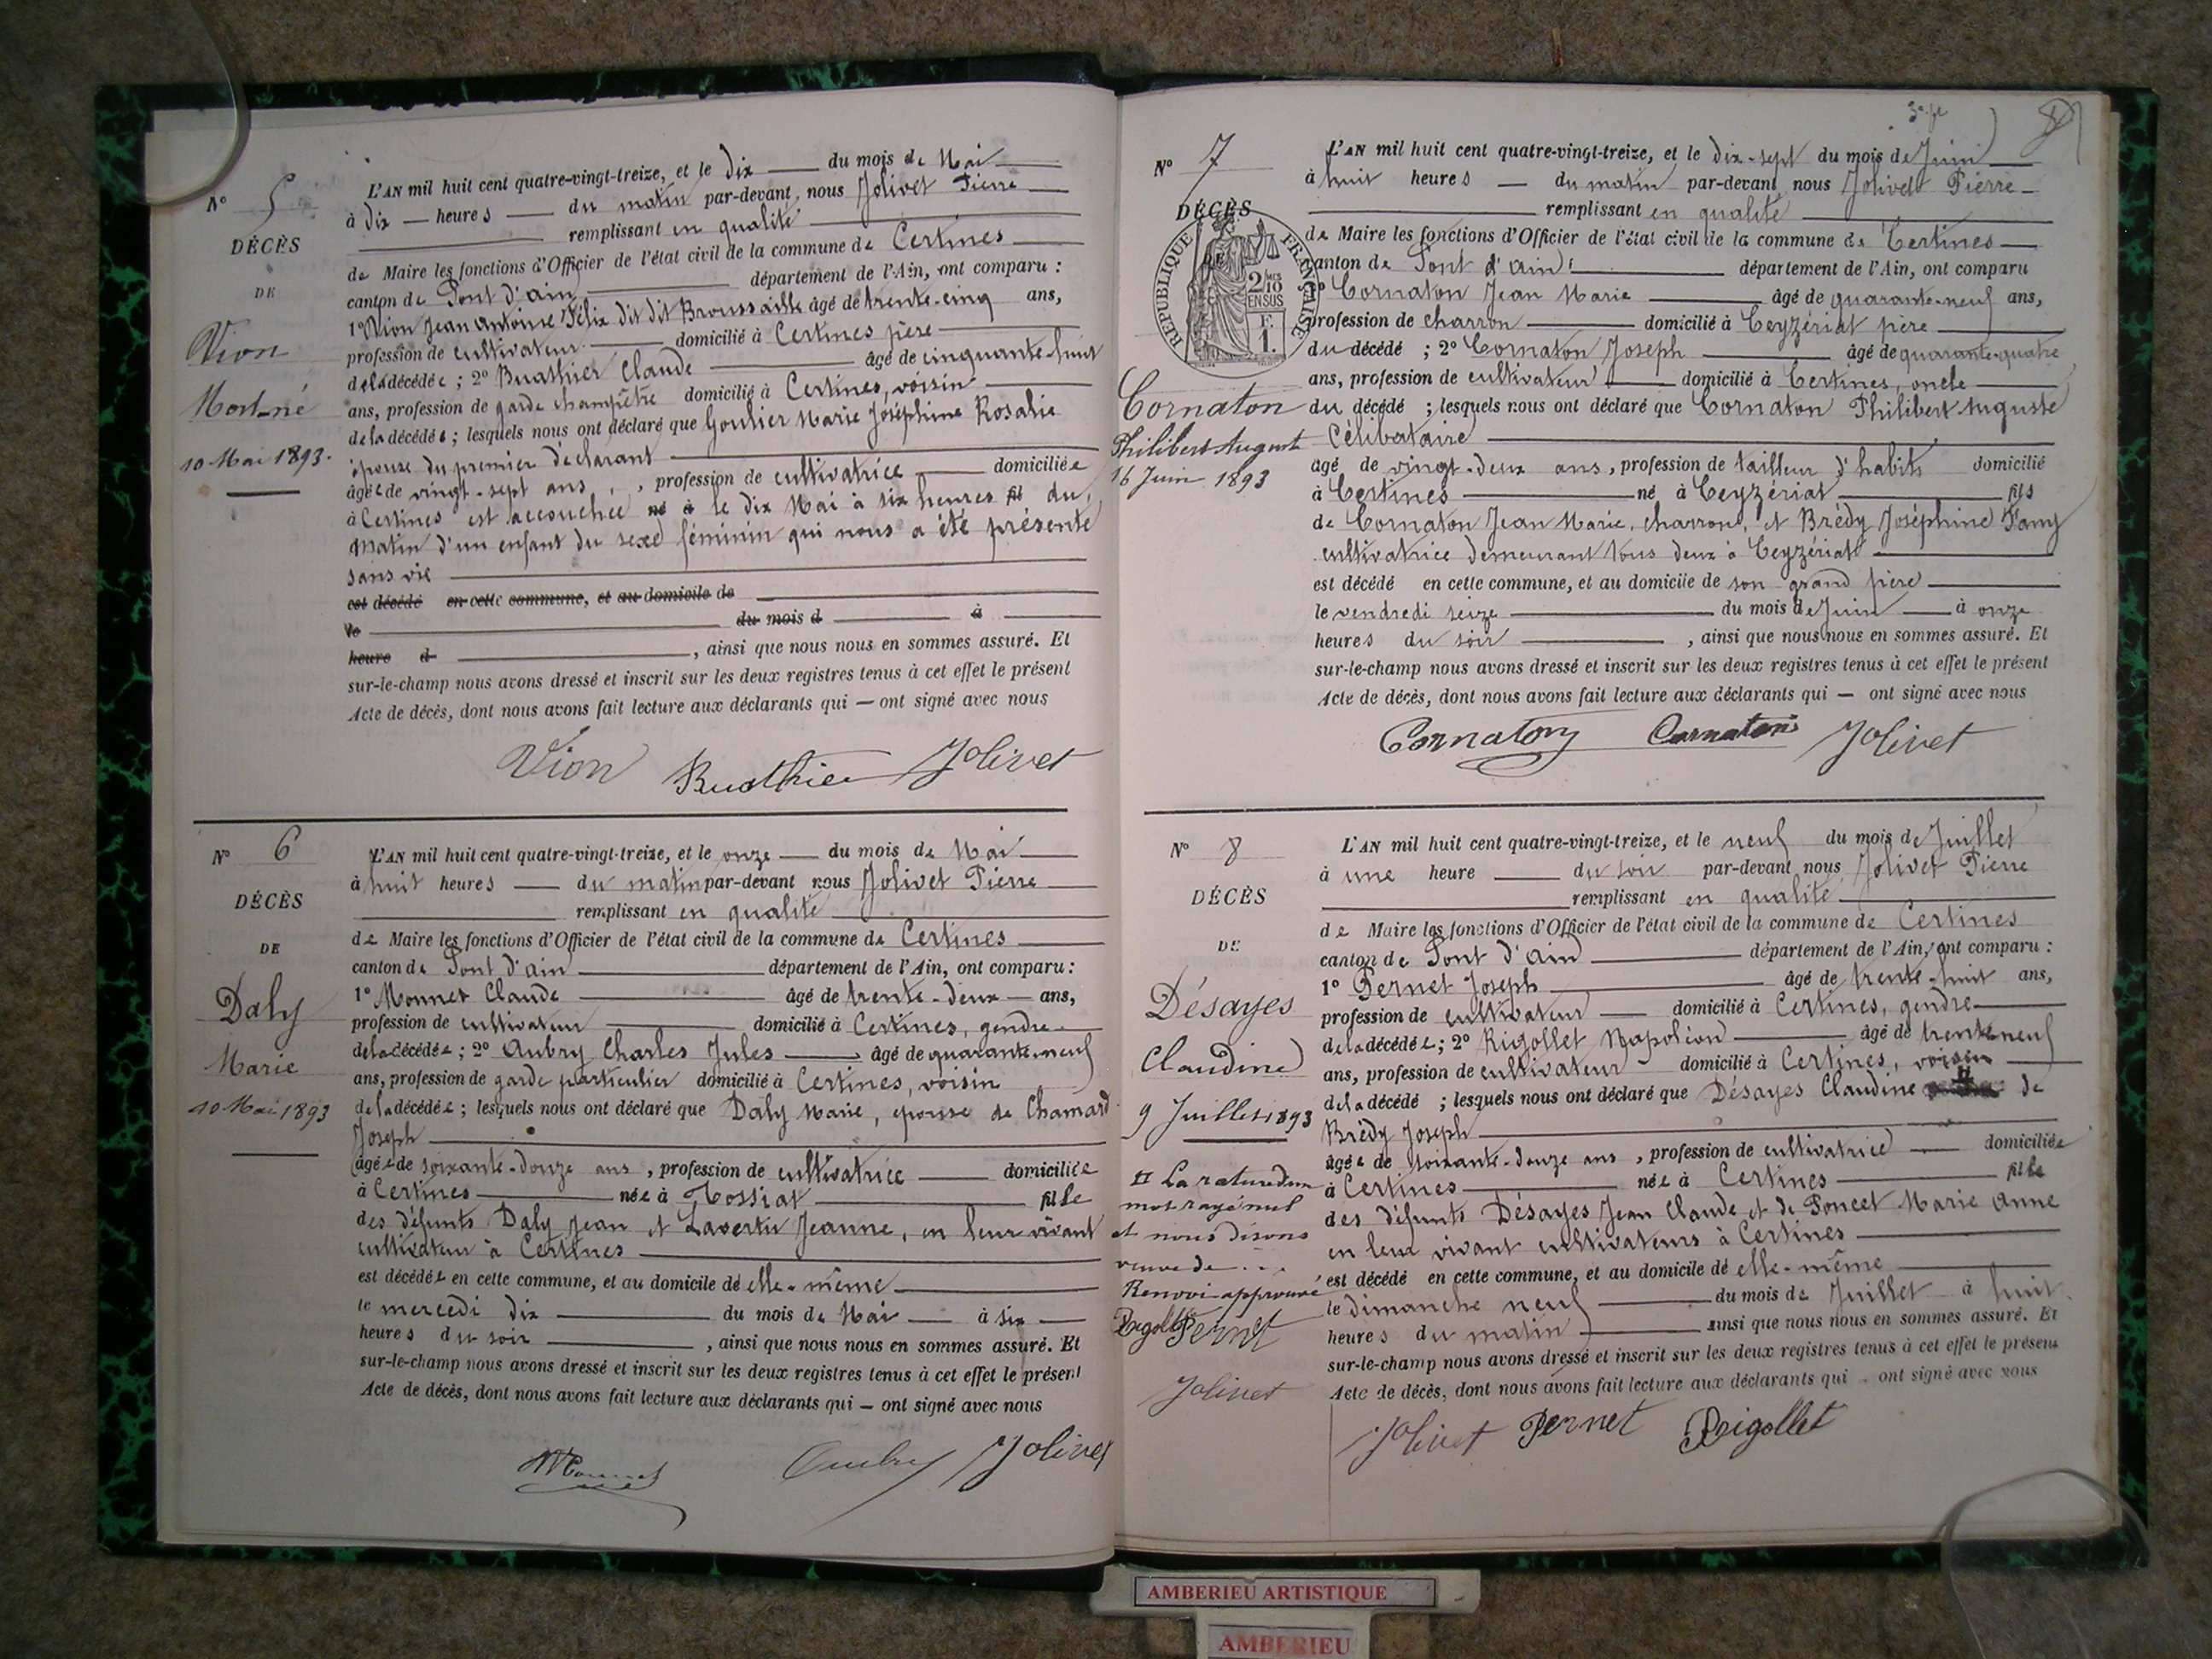 N° 5
DÉCÈS
DE
Vion
Mort-né
10 Mai 1893.
L'AN mil huit cent quatre-vingt-treize, et le dix du mois de Mai
à dix heures du matin par-devant nous Jolivet Pierre
remplissant en qualité
de Maire les fonctions d'Officier de l'état civil de la commune de Certines
canton de Pont d'ain département de l'Ain, ont comparu :
1° Vion Jean Antoine Félix dit dit Broussaille âgé de trente-cinq ans,
profession de cultivateur domicilié à Certines père
de la décédée ; 2° Buathier Claude âgé de cinquante-huit
ans, profession de garde champêtre domicilié à Certines, voisin
de la décédée ; lesquels nous ont déclaré que Goulier Marie Joséphine Rosalie
épouse du premier déclarant
âgée de vingt-sept ans, profession de cultivatrice domiciliée
à Certines est accouchée né à le dix Mai à six heures fil du
matin d'un enfant du sexe féminin qui nous a été présenté
sans vie
est décédé en cette commune, et au domicile de
le du mois d à
heure d , ainsi que nous nous en sommes assuré. Et
sur-le-champ nous avons dressé et inscrit sur les deux registres tenus à cet effet le présent
Acte de décès, dont nous avons fait lecture aux déclarants qui — ont signé avec nous
Vion Buathier Jolivet
N° 6
DÉCÈS
DE
Daly
Marie
10 Mai 1893
L'AN mil huit cent quatre-vingt-treize, et le onze du mois de Mai
à huit heures du matin par-devant nous Jolivet Pierre
remplissant en qualité
de Maire les fonctions d'Officier de l'état civil de la commune de Certines
canton de Pont d'ain département de l'Ain, ont comparu :
1° Monnet Claude âgé de trente-deux ans,
profession de cultivateur domicilié à Certines, gendre
de la décédée ; 2° Aubry Charles Jules âgé de quarante-neuf
ans, profession de garde particulier domicilié à Certines, voisin
de la décédée ; lesquels nous ont déclaré que Daly Marie, épouse de Chamard
Joseph
âgée de soixante-douze ans, profession de cultivatrice domiciliée
à Certines née à Tossiat fille
des défunts Daly Jean et Lavertu Jeanne, en leur vivant
cultivateur à Certines
est décédée en cette commune, et au domicile de elle-même
le mercredi dix du mois de Mai à six
heures du soir , ainsi que nous nous en sommes assuré. Et
sur-le-champ nous avons dressé et inscrit sur les deux registres tenus à cet effet le présent
Acte de décès, dont nous avons fait lecture aux déclarants qui — ont signé avec nous
Monnet Aubry Jolivet
N° 7
DÉCÈS
DE
RÉPUBLIQUE FRANÇAISE
2/10
EN SUS
F.
1.
Cornaton
Philibert August
16 Juin 1893
L'AN mil huit cent quatre-vingt-treize, et le dix-sept du mois de Juin
à huit heures du matin par-devant nous Jolivet Pierre
remplissant en qualité
de Maire les fonctions d'Officier de l'état civil de la commune de Certines
canton de Pont d'ain département de l'Ain, ont comparu
1° Cornaton Jean Marie âgé de quarante-neuf ans,
profession de charron domicilié à Ceyzériat père
du décédé ; 2° Cornaton Joseph âgé de quarante-quatre
ans, profession de cultivateur domicilié à Certines, oncle
du décédé ; lesquels nous ont déclaré que Cornaton Philibert Auguste
Célibataire
âgé de vingt-deux ans, profession de tailleur d'habits domicilié
à Certines né à Ceyzériat fils
de Cornaton Jean Marie, charron, et Brédy Joséphine Fany
cultivatrice demeurant tous deux à Ceyzériat
est décédé en cette commune, et au domicile de son grand père
le vendredi seize du mois de Juin à onze
heures du soir , ainsi que nous nous en sommes assuré. Et
sur-le-champ nous avons dressé et inscrit sur les deux registres tenus à cet effet le présent
Acte de décès, dont nous avons fait lecture aux déclarants qui — ont signé avec nous
Cornaton Cornaton Jolivet
N° 8
DÉCÈS
DE
Désayes
Claudine
9 Juillet 1893
La rature d'un
mot rayé nul
et nous disons
veuve de...
Renvoi approuvé
Rigollet Pernet
Jolivet
L'AN mil huit cent quatre-vingt-treize, et le neuf du mois de Juillet
à une heure du soir par-devant nous Jolivet Pierre
remplissant en qualité
de Maire les fonctions d'Officier de l'état civil de la commune de Certines
canton de Pont d'ain département de l'Ain, ont comparu :
1° Pernet Joseph âgé de trente-huit ans,
profession de cultivateur domicilié à Certines, gendre
de la décédée ; 2° Rigollet Napoléon âgé de trente neuf
ans, profession de cultivateur domicilié à Certines, voisin
de la décédé ; lesquels nous ont déclaré que Désayes Claudine de
Brédy Joseph
âgée de soixante-douze ans, profession de cultivatrice domiciliée
à Certines née à Certines fille
des défunts Désayes Jean Claude et de Poncet Marie Anne
en leur vivant cultivateurs à Certines
est décédé en cette commune, et au domicile de elle-même
le dimanche neuf du mois de Juillet à huit
heures du matin ainsi que nous nous en sommes assuré. Et
sur-le-champ nous avons dressé et inscrit sur les deux registres tenus à cet effet le présent
Acte de décès, dont nous avons fait lecture aux déclarants qui ont signé avec nous
Jolivet Pernet Rigollet
AMBERIEU ARTISTIQUE
AMBERIEU